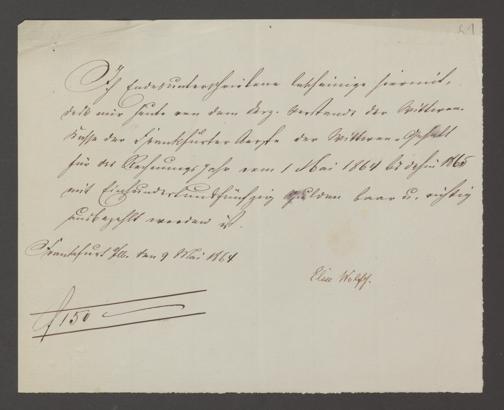 Ich Endesunterschriebene bescheinige hiermit,
daß mir heute von dem Vorstande der Wittwen-
Kasse der Frankfurter Aerzte der Wittwen-Gehalt
für das Rechnungs Jahr vom 1 Mai 1864 bis dahin 1865
mit Einhundertundfünfzig Gulden baar u. richtig
ausbezahlt worden ist.
Frankfurt den 9 Mai 1864
Elise
f 150